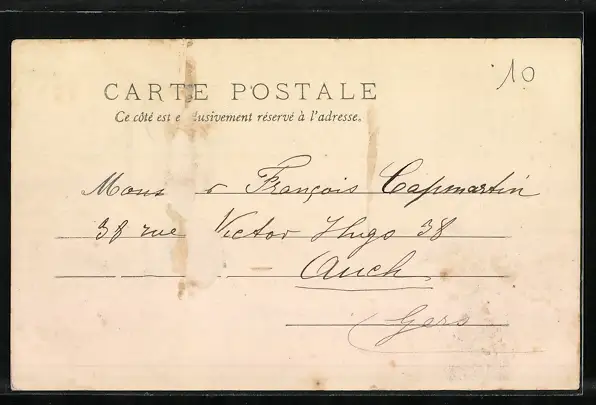 10
CARTE POSTALE
Ce côté est e lusivement réservé à l'adresse.
Mons r François Capmartin
38 rue Victor Hugo 38
Auch
Gers